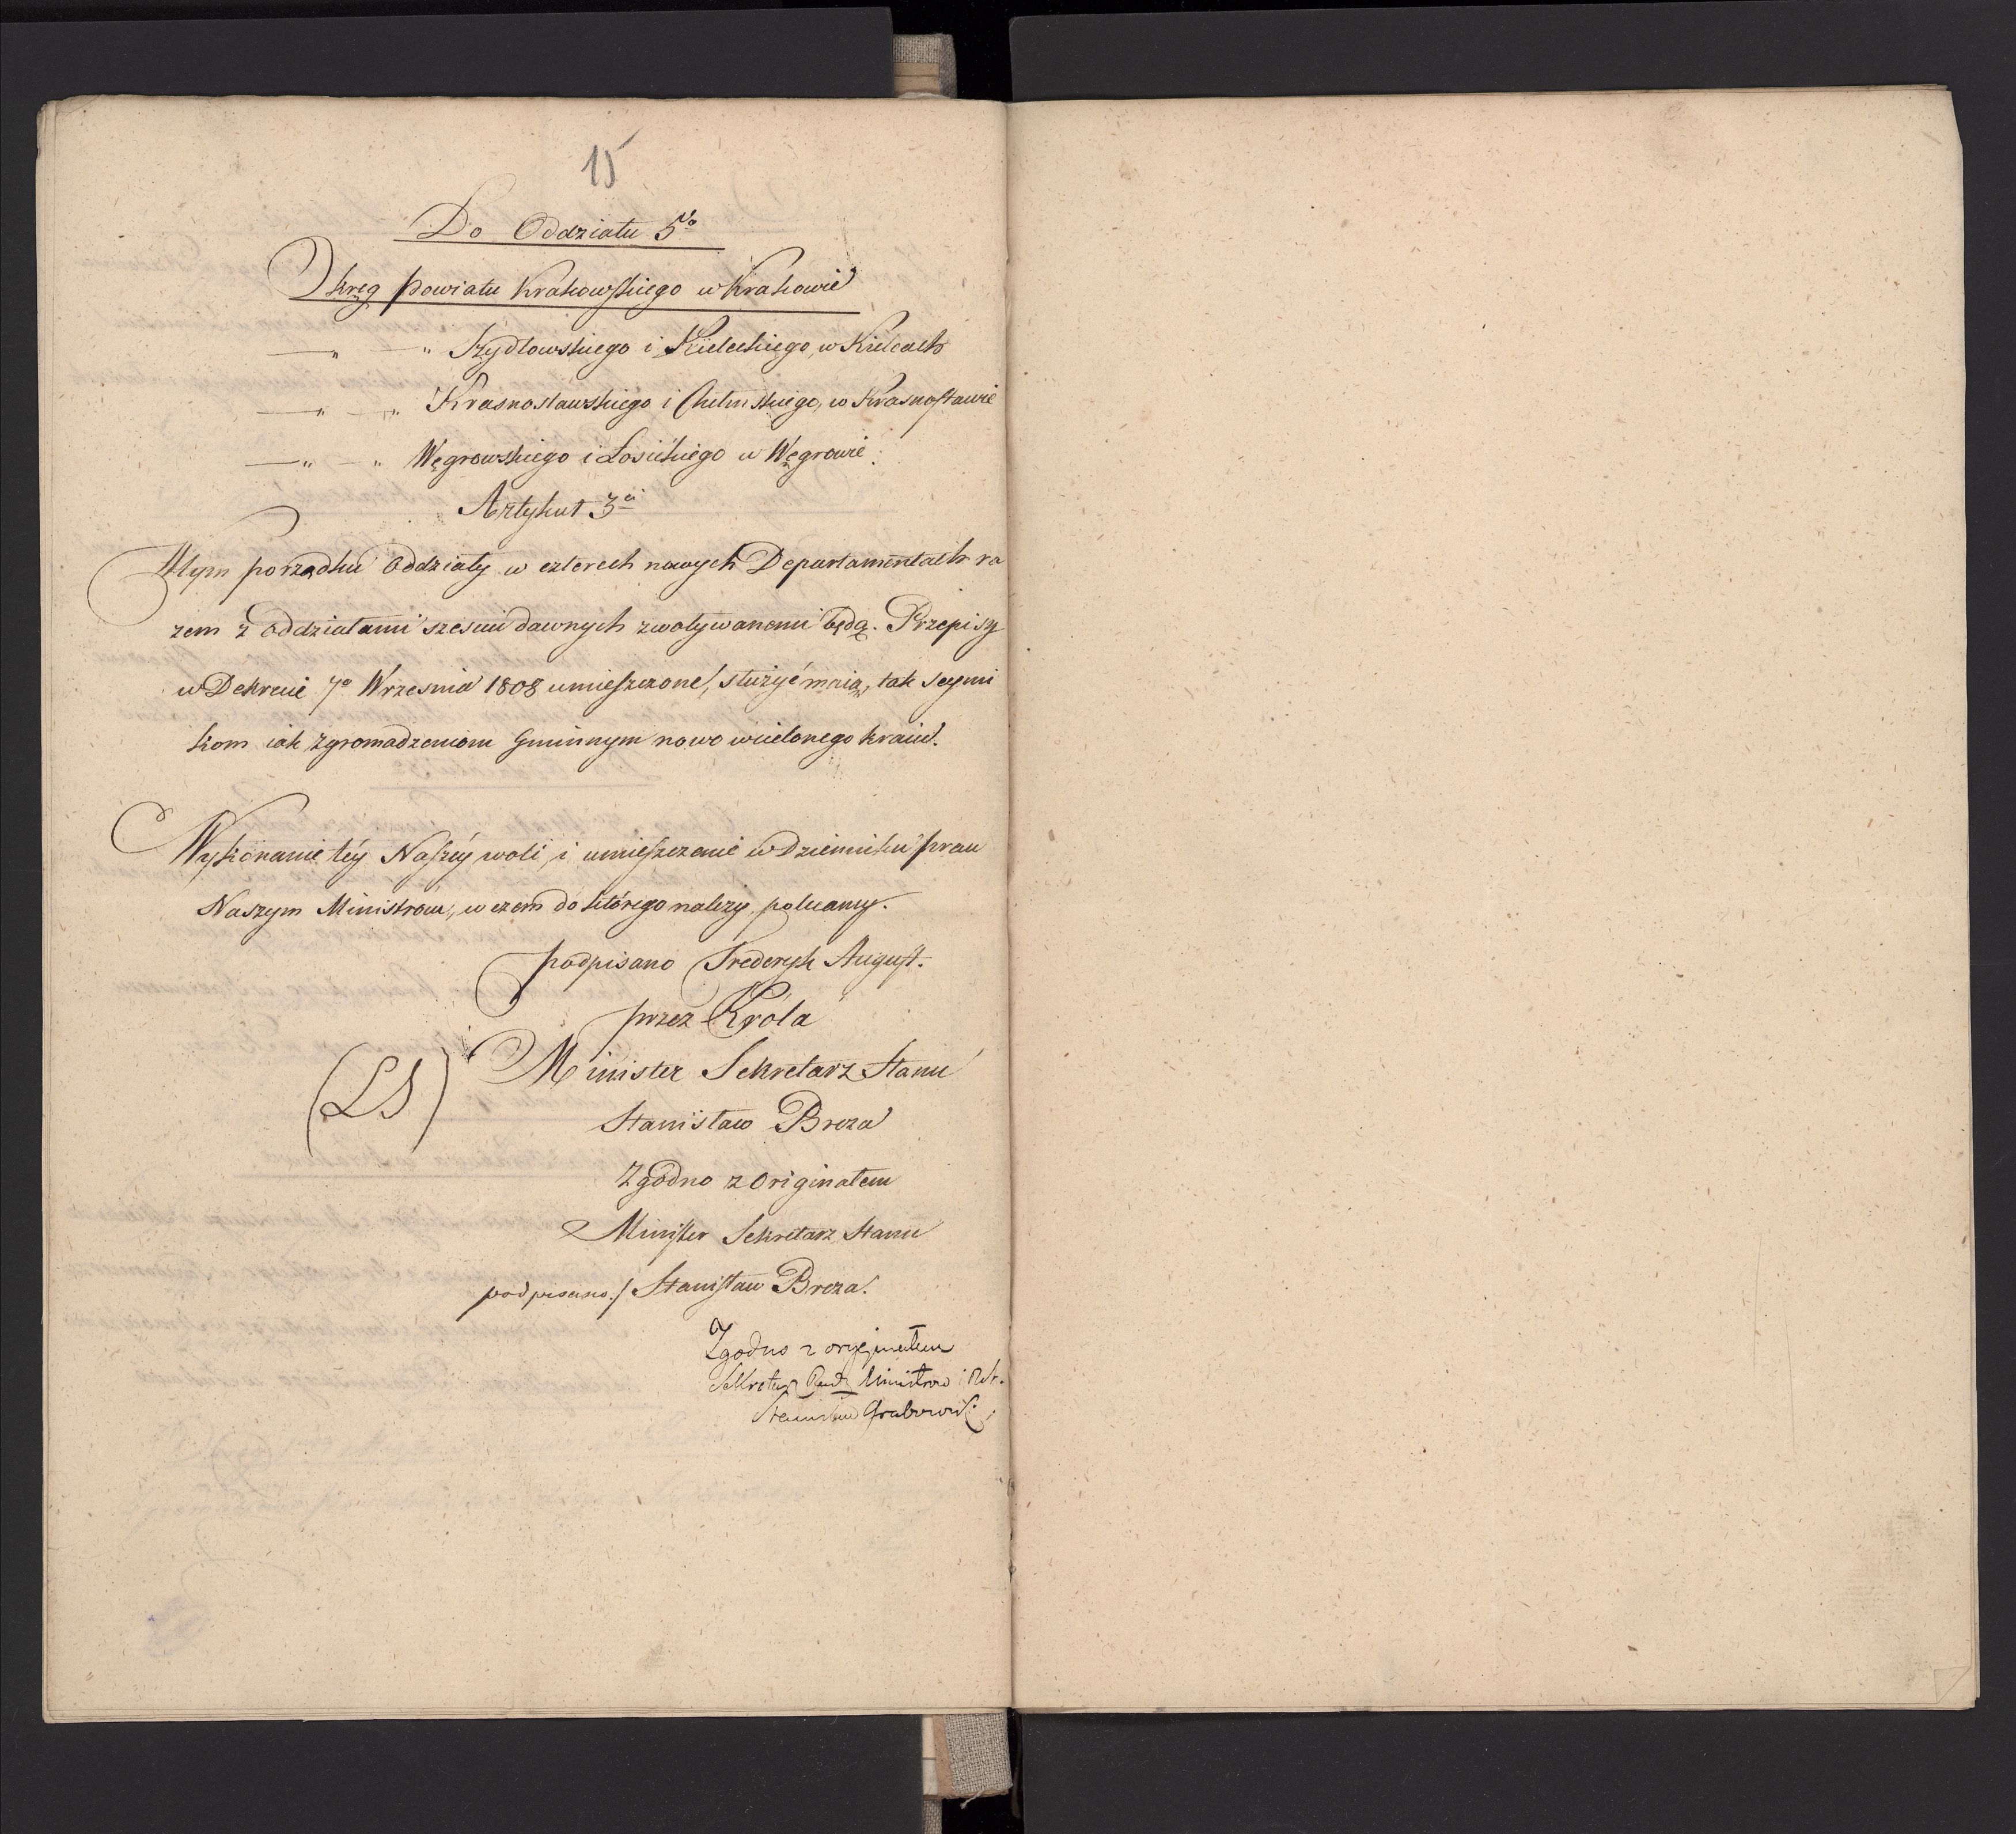 15
Do Oddziału 5go
Okręg powiatu Krakowskiego w Krakowie
—„ —„ Szydłowskiego i Kieleckiego, w Kielcach
—„ —„ Krasnostawskiego i Chełmskiego, w Krasnostawie
—„ —„ Węgrowskiego i Łosickiego w Węgrowie.
Artykuł 3ci
Wtym porządku Oddziały w czterech nowych Departamentach ra
zem z oddziałami sześciu dawnych zwoływanemi będą. Przepisy
w Dekrecie 7o Września 1808 umieszczone, służyć maią, tak seymi
kom iak zgromadzeniom Gminnym nowo wcielonego kraiu.
Wykonanie téy Naszéy woli, i umieszczenie w Dzienniku praw
Naszym Ministrom, w czem do którego należy, polecamy.
podpisano Frederyk August.
przez Króla
(LS) Minister Sekretarz Stanu
Stanisław Breza
Zgodno z Originałem
Minister Sekretarz Stanu
podpisano./ Stanisław Breza.
Zgodno z oryginałem
Sekretarz Rady Ministrow i
Stanisław Grabowski